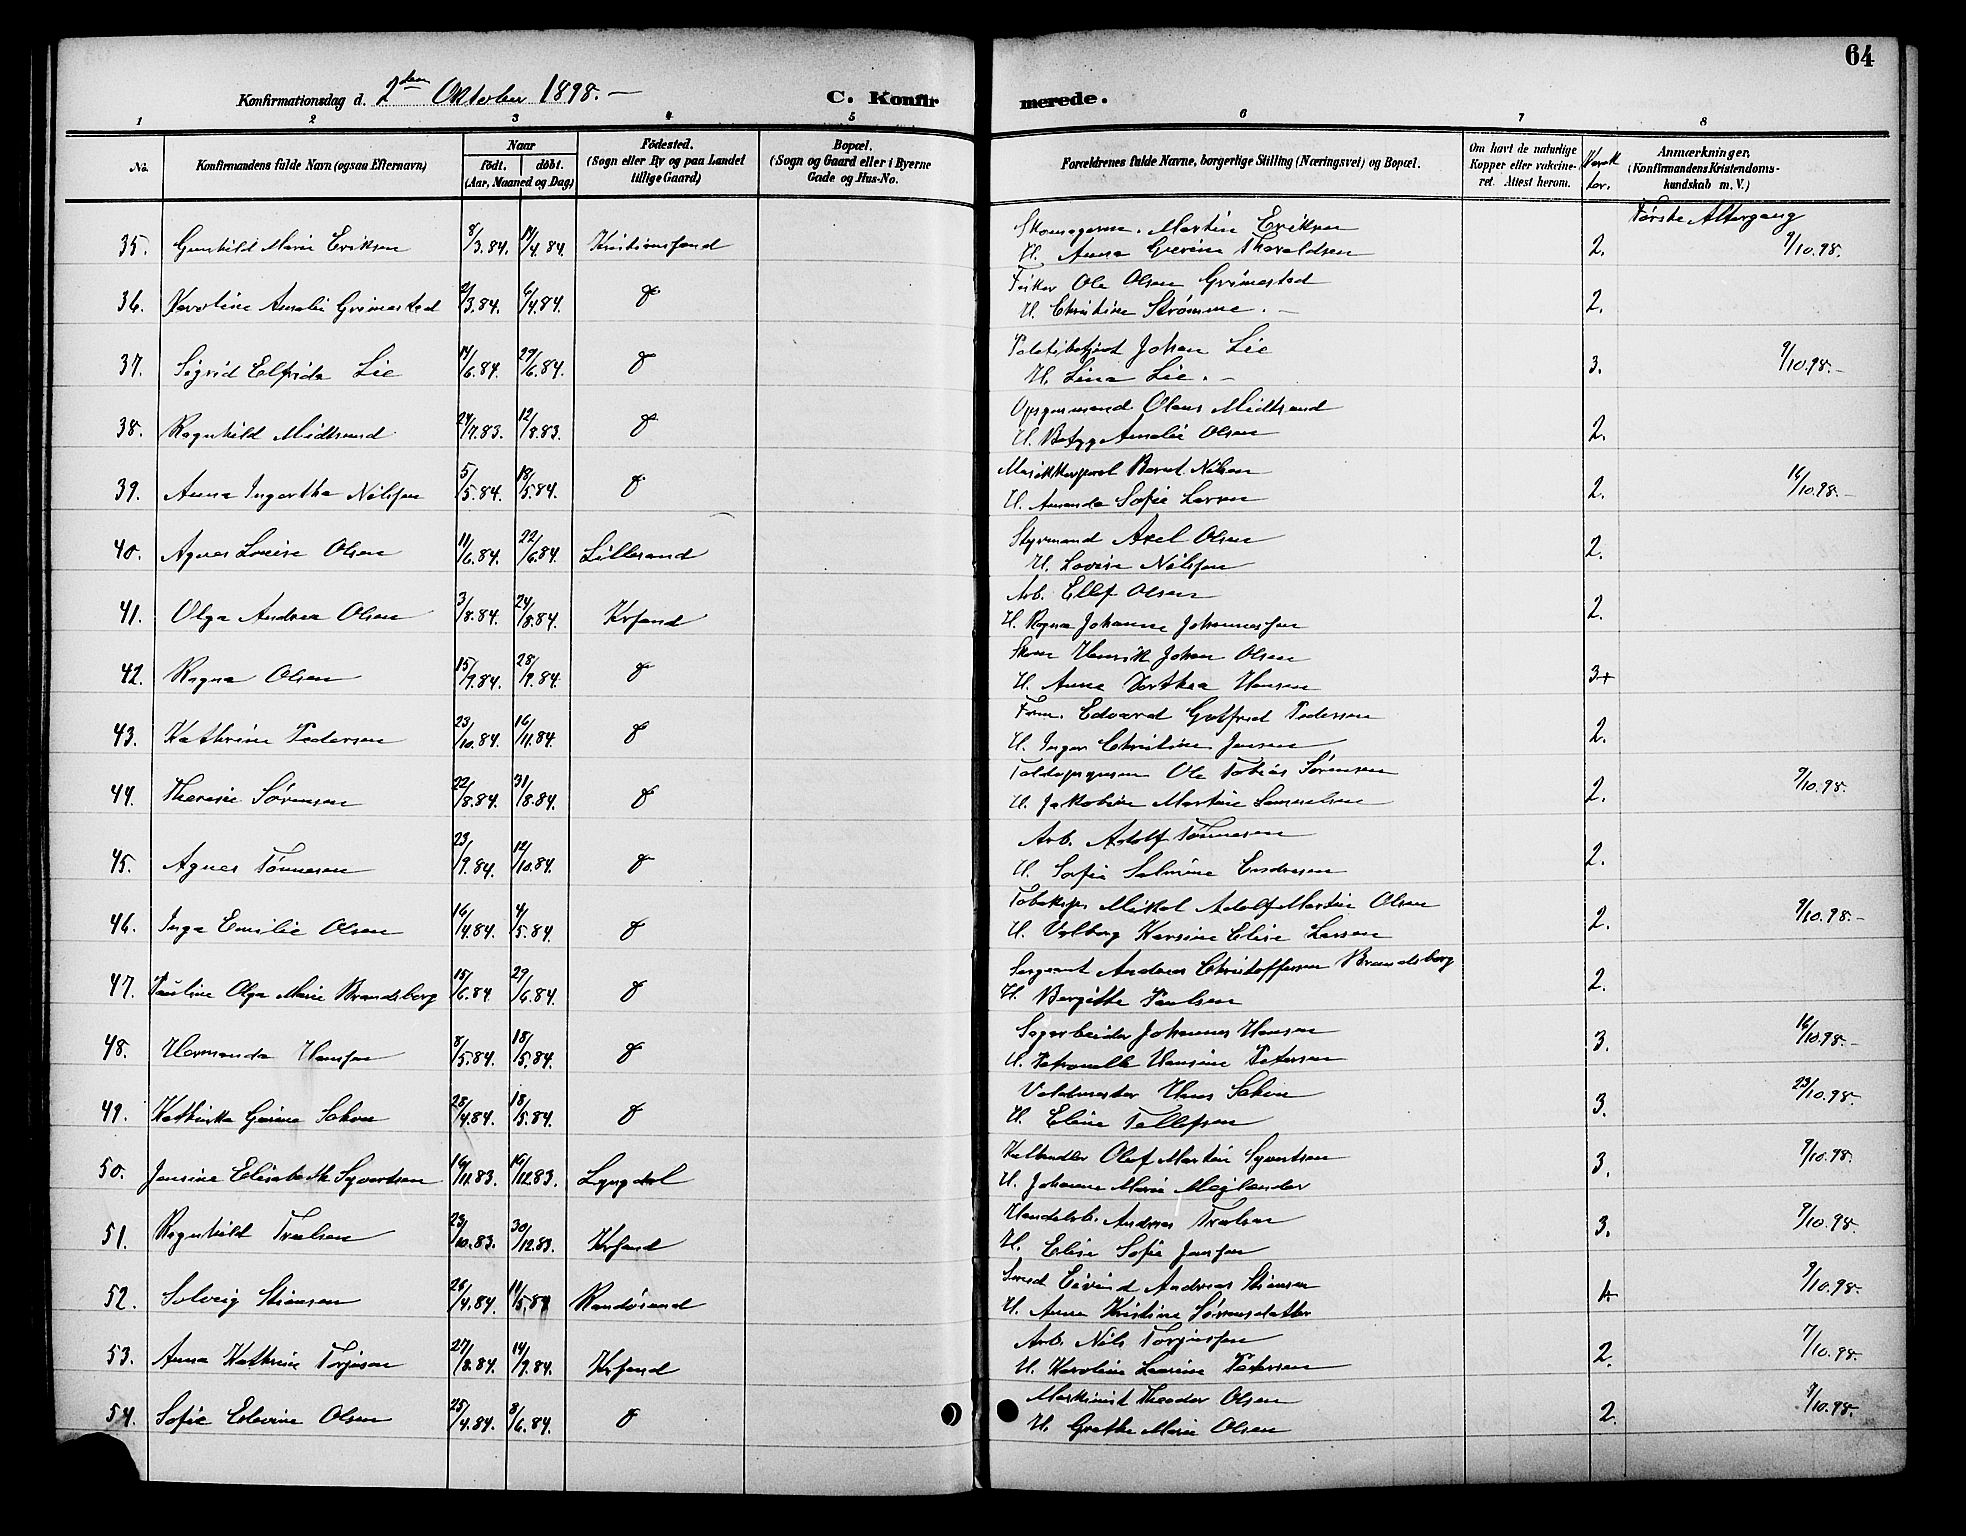 64
Konfirmationsdag d. 2den Oktober 1898. — C. Konfirmerede.
1 2 3 4 5 6 7 8
No. Konfirmandens fulde Navn (ogsaa Efternavn) Naar født. døbt. (Aar, Maaned og Dag) Fødested. (Sogn eller By og paa Landet tillige Gaard) Bopæl. (Sogn og Gaard eller i Byerne Gade og Hus-No. Forældrenes fulde Navne, borgerlige Stilling (Næringsvei) og Bopæl. Om havt de naturlige Kopper eller vakcineret. Attest herom. Anmærkninger, (Konfirmandens Kristendomskundskab m. V.)
Første Altergang
35. Gunhild Marie Eriksen 8/3.84. 14/4.84. Kristiansand Martin Eriksen 2. 9/10.98.
H. Anna Thoraldsen
36. Karoline Amalie Grimestad 2/3.84. 6/4.84. Fisker Ole Olsen Grimestad 2.
H. Christine Strømme. —
37. Sigrid Elfrida Lie 14/6.84. 29/6.84. Johan Lie 3. 9/10.98. —
H. Lina Lie. —
38. Ragnhild Midtsund 12/8.83. Opsynsmand Olaus Midtsund 2.
H. Amalie Olsen
39. Anna Ingertha Nilssen 5/5.84. 18/5.84. Bernt Nilsen 2. 16/10.98. —
H. Amanda Sofie Larsen
40. Agnes Lovise Olsen 11/6.84. 22/6.84. Lillesand Styrmand Axel Olsen 2.
H. Lovise Nilssen
41. Olga Andrea Olsen 3/8.84. 24/8.84. Krsand Arb. Ellef Olsen 2.
H. Ragna Johanne Johannessen
42. Ragna Olsen 15/9.84. 28/9.84. Henrik Johan Olsen 3+
H. Anna Dorthea Hansen
43. Kathrine Pedersen 23/10.84. 16/11.84. Edvard Gotfred Pedersen 2.
H. Inger Christine Jensen
44. Therese Sørensen 22/8.84. 31/8.84. Ole Tobias Sørensen 2. 9/10.98.
H. Jakobine Martine Samuelsen
45. Agnes Tønnesen 23/9.84. 12/10.84. Arb. Adolf Tønnesen 2.
H. Sofie Salmine Endresen
46. Inga Emilie Olsen 16/4.84. 4/5.84. Mikal Adolf Martin Olsen 2. 9/10.98. —
H. Valborg Karsine Elise Larsen
47. Pauline Olga Marie Brandsborg 15/6.84 29/6.84. Sergeant Andreas Christoffersen Brandsborg 2.
H. Bergitte Paulsen
48. Hermanda Hansen 8/5.84. 18/5.84. Johannes Hansen 3. 16/10.98. —
H. Petronelle Hansine Petersen
49. Kathinka 28/4.84. 18/5.84. Hans 3. 23/10.98.
H. Eline Tellefsen
50. Jensine Elisabeth Syvertsen 16/11.83. 16/12.83. Lyngdal Olaf Martin Syvertsen 3. 9/10.98.
H. Johanne Marie Meglander
51. Ragnhild Trælsen 23/10.83. 30/12.83. Krsand Andreas Trælsen 3. 9/10.98.
H. Elise Sofie Jansen
52. Solveig Stiansen 26/4.84. 11/5.84 Randøsund Smed Eivind Andreas Stiansen 9/10.98.
H. Anna Kristine Sørensdatter
53. Anna Kathrine Torjusen 27/8.84. 14/9.84. Krsand Arb. Nils Torjussen 2. 9/10.98.
H. Karoline Laurine Pedersen
54. Sofie Elevine Olsen 25/4.84. 8/6.84. Maskinist Theodor Olsen 2. 9/10.98.
H. Grethe Marie Olsen